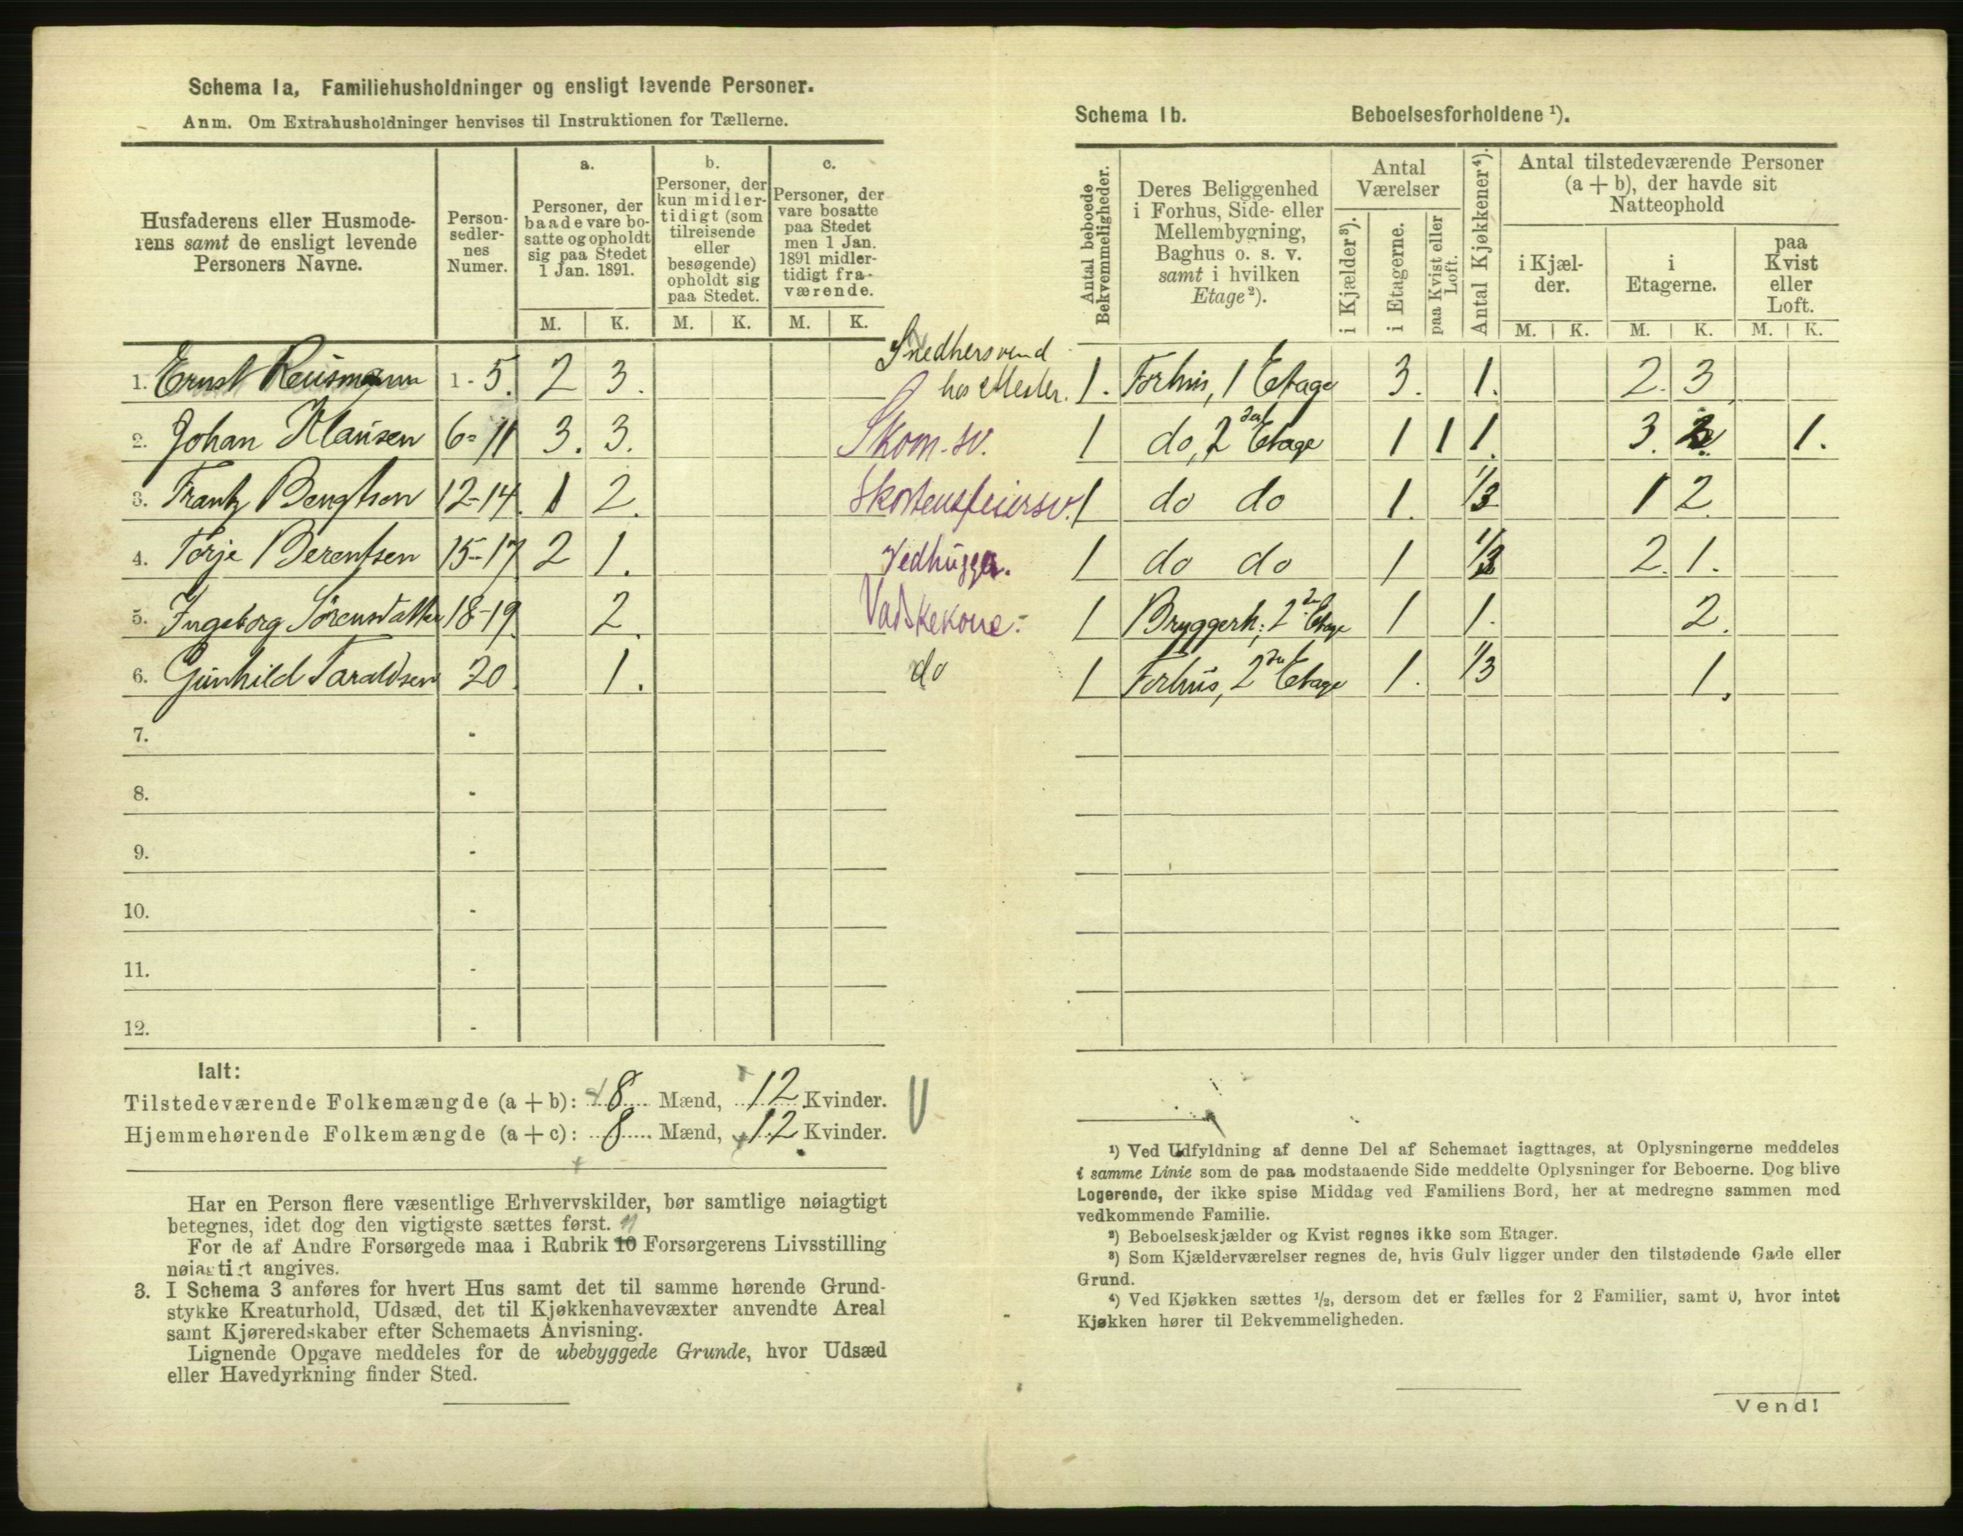 Schema 1a, Familiehusholdninger og ensligt levende Personer.
Anm. Om Extrahusholdninger henvises til Instruktionen for Tællerne.
Husfaderens eller Husmode-
rens samt de ensligt levende
Personers Navne.
Person-
sedler-
nes
Numer.
a.
Personer, der
baade vare bo-
satte og opholdt
sig paa Stedet
1 Jan. 1891.
b.
Personer, der
kun midler-
tidigt (som
tilreisende
eller
besøgende)
opholdt sig
paa Stedet.
c.
Personer, der
vare bosatte
paa Stedet
men 1 Jan.
1891 midler-
tidigt fra-
værende.
M. K. M. K. M. K.
1. Ernst Reusmann 1-5. 2 3. Snedkersvend
hos Mester.
2. Johan Klausen 6-11 3. 3. Skom.sv.
3. Frantz Bengtson 12-14. 1 2. Skorstensfeiersv.
4. Torje Berentsen 15-17 2 1. Vedhugger.
5. Ingeborg Sørensdatter 18-19 2. Vadskekone.
6. Gunhild Taraldsen 20 1. do
7. -
8. -
9. -
10. -
11. -
12. -
Ialt:
Tilstedeværende Folkemængde (a + b): 8 Mænd, 12 Kvinder.
Hjemmehørende Folkemængde (a + c): 8 Mænd, 12 Kvinder.
Har en Person flere væsentlige Erhvervskilder, bør samtlige nøiagtigt
betegnes, idet dog den vigtigste sættes først.
For de af Andre Forsørgede maa i Rubrik 10 Forsørgerens Livsstilling
nøiagtigt angives.
3. I Schema 3 anføres for hvert Hus samt det til samme hørende Grund-
stykke Kreaturhold, Udsæd, det til Kjøkkenhavevæxter anvendte Areal
samt Kjøreredskaber efter Schemaets Anvisning.
Lignende Opgave meddeles for de ubebyggede Grunde, hvor Udsæd
eller Havedyrkning finder Sted.
Schema 1b. Beboelsesforholdene ¹).
Antal beboede
Bekvemmeligheder.
Deres Beliggenhed
i Forhus, Side- eller
Mellembygning,
Baghus o. s. v.
samt i hvilken
Etage ²).
Antal
Værelser
i Kjælder ³).
i Etagerne.
paa Kvist eller
Loft.
Antal Kjøkkener ⁴).
Antal tilstedeværende Personer
(a + b), der havde sit
Natteophold
i Kjæl-
der.
i
Etagerne.
paa
Kvist
eller
Loft.
M. K. M. K. M. K.
1. Forhus, 1 Etage 3. 1. 2. 3
1 do, 2den Etage 1 1 1. 3. 2. 1.
1 do do 1. 1/3 1 2.
1 do do 1 1/3 2. 1.
1 Bryggerh., 2den Etage 1 1. 2.
1 Forhus, 2den Etage 1. 1/3 1.
¹) Ved Udfyldning af denne Del af Schemaet iagttages, at Oplysningerne meddeles
i samme Linie som de paa modstaaende Side meddelte Oplysninger for Beboerne. Dog blive
Logerende, der ikke spise Middag ved Familiens Bord, her at medregne sammen med
vedkommende Familie.
²) Beboelseskjælder og Kvist regnes ikke som Etager.
³) Som Kjælderværelser regnes de, hvis Gulv ligger under den tilstødende Gade eller
Grund.
⁴) Ved Kjøkken sættes ½, dersom det er fælles for 2 Familier, samt 0, hvor intet
Kjøkken hører til Bekvemmeligheden.
Vend!